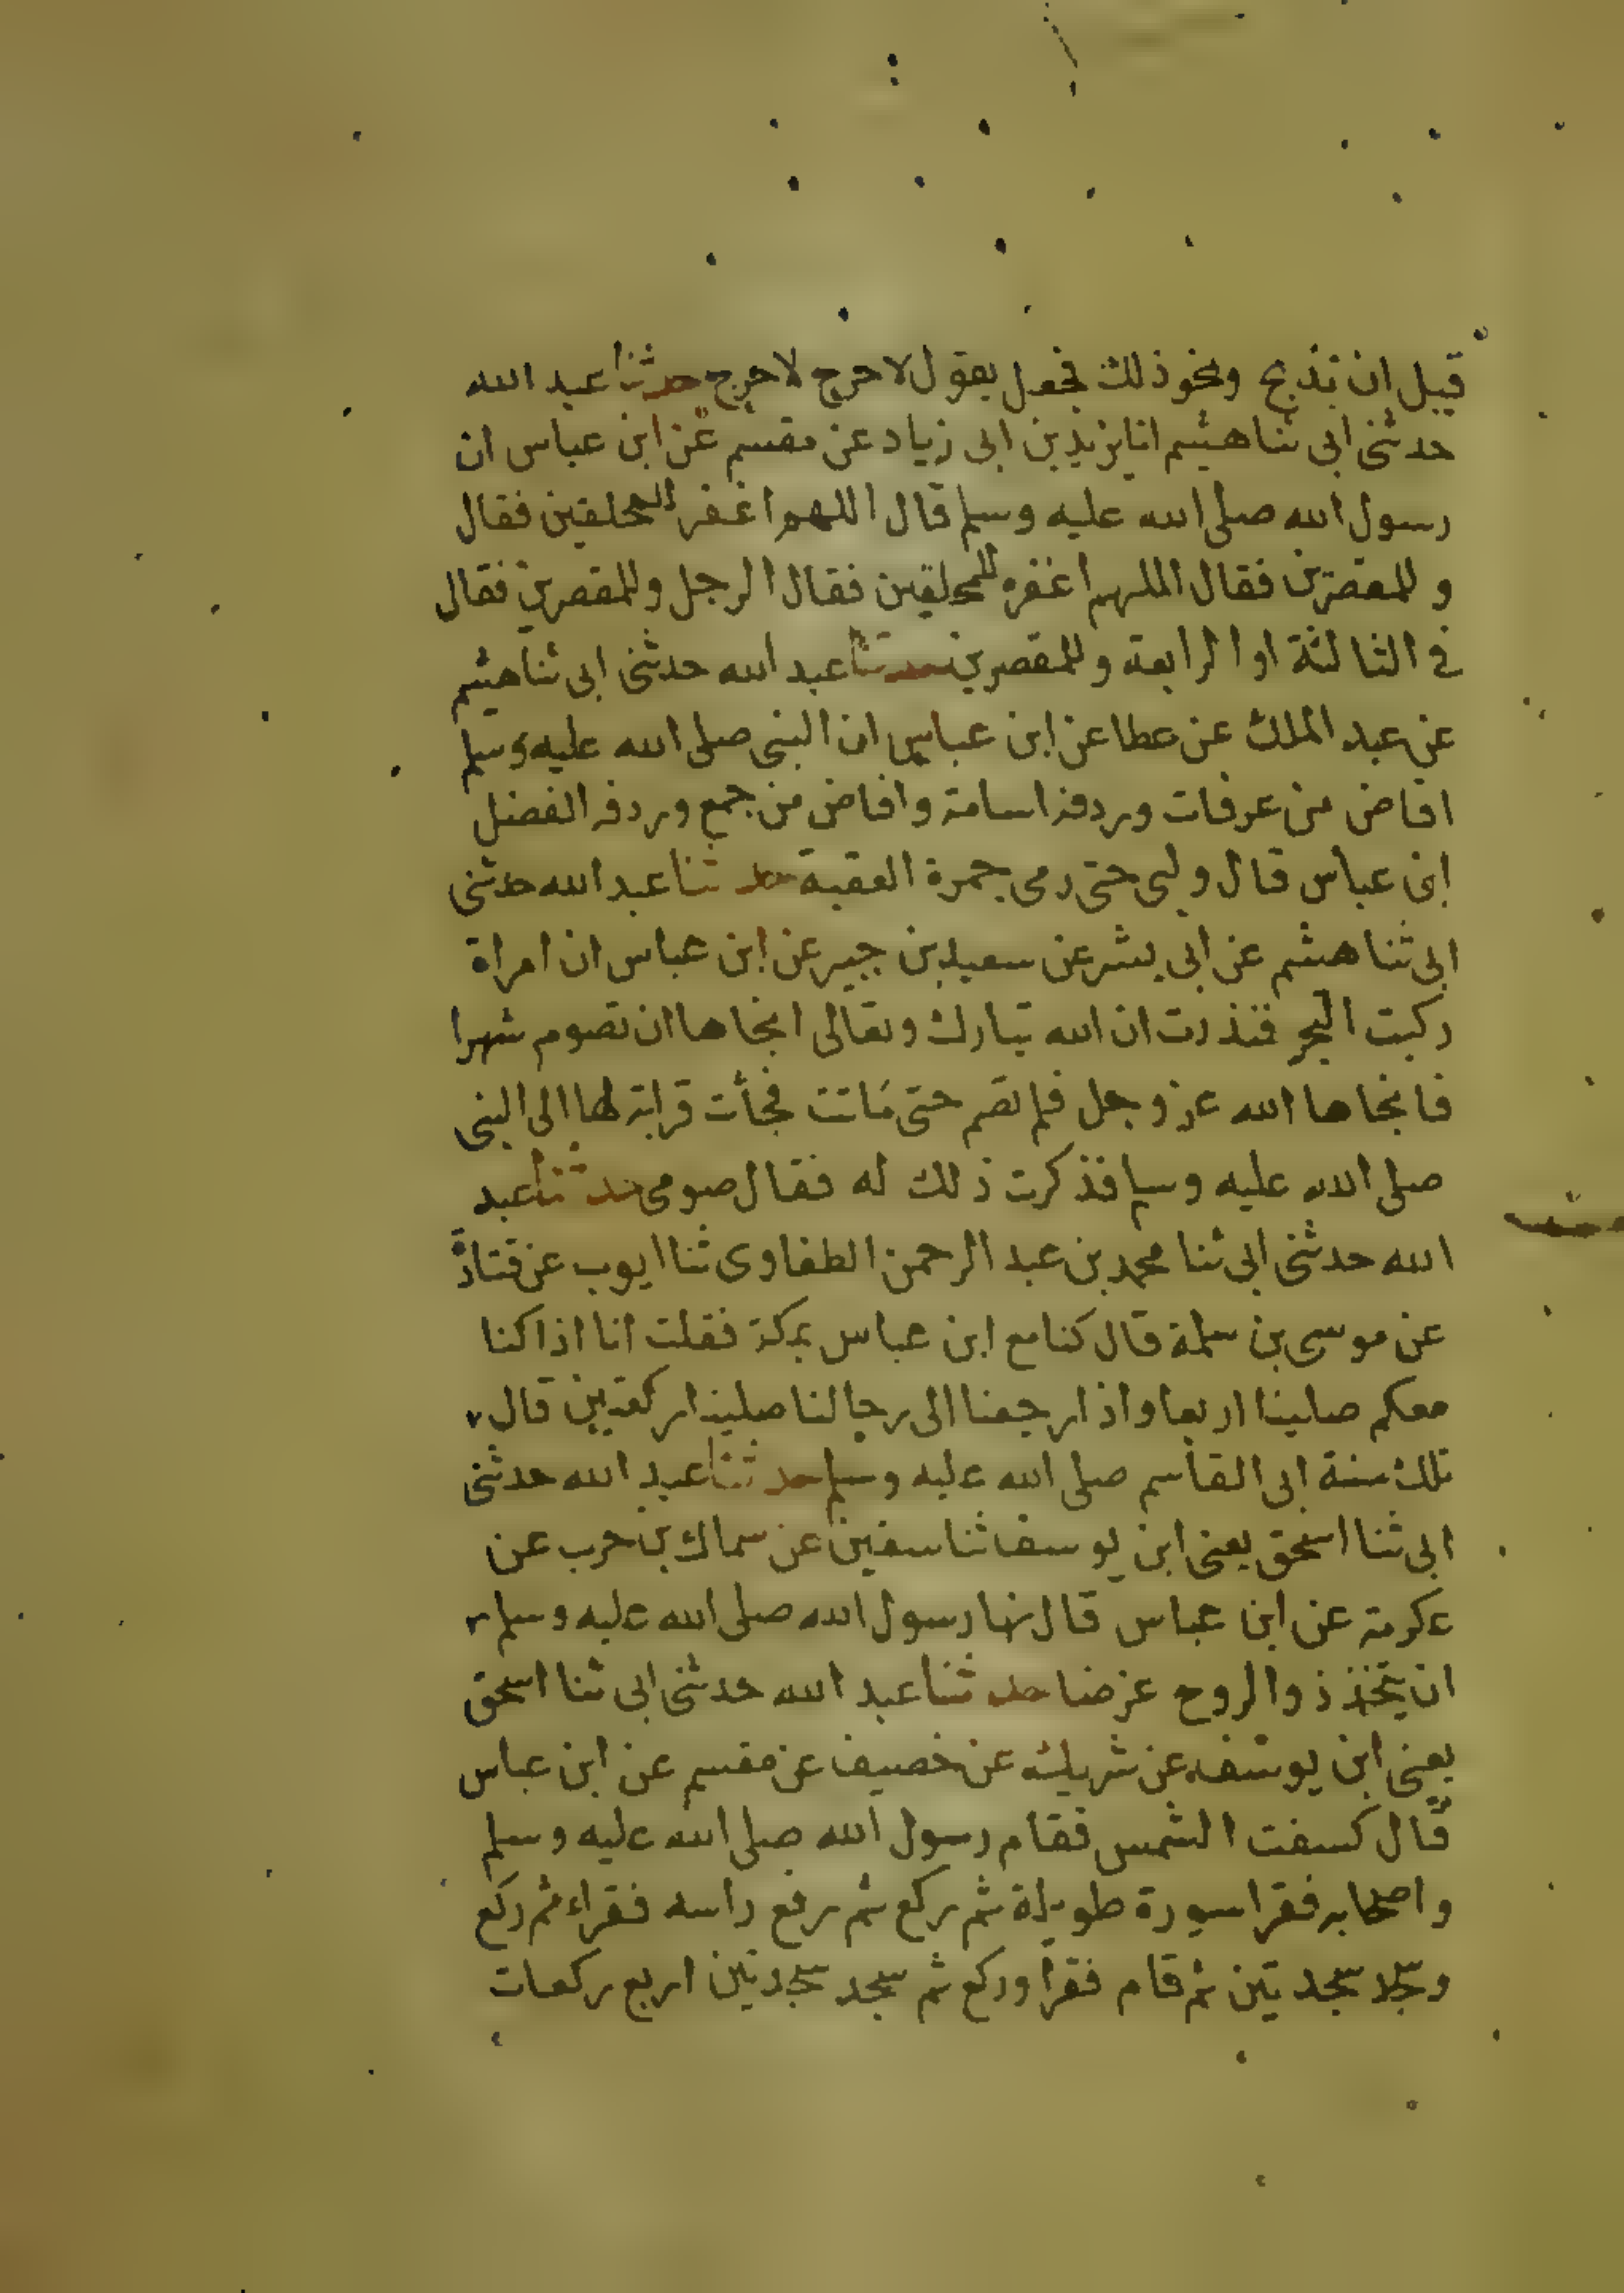 قبل ان تذبح ونحو ذلك فجعل يقول لا حرج لا حرج حدثنا عبد الله
حدثنى ابى ثنا هشيم انا يزيد بن ابى زياد عن مقسم عن ابن عباس ان
رسول الله صلى الله عليه وسلم قال اللهم اغفر للمحلقين فقال
وللمقصرين فقال اللهم اغفره للمحلقين فقال الرجل وللمقصرين فقال
فى الثالثة او الرابعة وللمقصرين حدثنا عبد الله حدثنى ابى ثنا هشيم
عن عبد الملك عن عطا عن ابن عباس ان النبى صلى الله عليه وسلم
افاض من عرفات وردفه اسامة وافاض من جمع وردفه الفضل
ابن عباس قال ولبى حتى رمى جمرة العقبة حدثنا عبد الله حدثنى
ابى ثنا هشيم عن ابى بشر عن سعيد بن جبير عن ابن عباس ان امراة
ركبت البحر فنذرت ان الله تبارك وتعالى انجاها ان تصوم شهرا
فانجاها الله عز وجل فلم تصم حتى ماتت فجأت قرابة لها الى النبى
صلى الله عليه وسلم فذكرت ذلك له فقال صومى حدثنا عبد
الله حدثنى ابى ثنا محمد بن عبد الرحمن الطفاوى ثنا ايوب عن قتادة
عن موسى بن سلمة قال كنا مع ابن عباس بمكة فقلت انا اذا كنا
معكم صلينا اربعا واذا رجعنا الى رحالنا صلينا ركعتين قال
تلك سنة ابى القاسم صلى الله عليه وسلم حدثنا عبد الله حدثنى
ابى ثنا اسحق يعنى ابن يوسف ثنا سفين عن سماك بن حرب عن
عكرمة عن ابن عباس قال نها رسول الله صلى الله عليه وسلم
ان يتخذ ذو الروح غرضا حدثنا عبد الله حدثنى ابى ثنا اسحق
يعنى ابن يوسف عن شريك عن خصيف عن مقسم عن ابن عباس
قال كسفت الشمس فقام رسول الله صلى الله عليه وسلم
واصحابه فقرا سورة طويلة ثم ركع ثم رفع راسه فقراء ثم ركع
وسجد سجدتين ثم قام فقرأ وركع ثم سجد سجدتين اربع ركعات